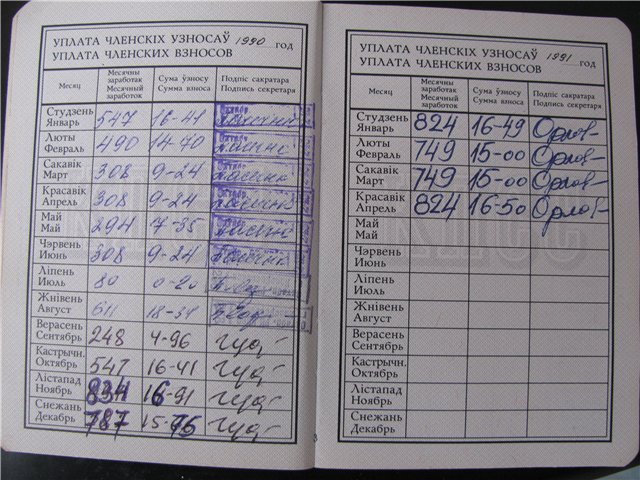 УПЛАТА ЧЛЕНСКІХ УЗНОСАЎ 1990 год
УПЛАТА ЧЛЕНСКИХ ВЗНОСОВ
Месяц
Месячны заработак
Месячный заработок
Сума ўзносу
Сумма взноса
Подпіс сакратара
Подпись секретаря
Студзень
Январь 547 16-41
Люты
Февраль 490 14-70
Сакавік
Март 308 9-24
Красавік
Апрель 308 9-24
Май
Май 294 7-35
Чэрвень
Июнь 308 9-24
Ліпень
Июль 80 0-20
Жнівень
Август 611 18-34
Верасень
Сентябрь 248 4-96
Кастрычн.
Октябрь 547 16-41
Лістапад
Ноябрь 834 16-91
Снежань
Декабрь 787 15-75
3
УПЛАТА ЧЛЕНСКІХ УЗНОСАЎ 1991 год
УПЛАТА ЧЛЕНСКИХ ВЗНОСОВ
Месяц
Месячны заработак
Месячный заработок
Сума ўзносу
Сумма взноса
Подпіс сакратара
Подпись секретаря
Студзень
Январь 824 16-49 Орлов
Люты
Февраль 749 15-00 Орлов
Сакавік
Март 749 15-00 Орлов
Красавік
Апрель 824 16-50 Орлов
Май
Май
Чэрвень
Июнь
Ліпень
Июль
Жнівень
Август
Верасень
Сентябрь
Кастрычн.
Октябрь
Лістапад
Ноябрь
Снежань
Декабрь